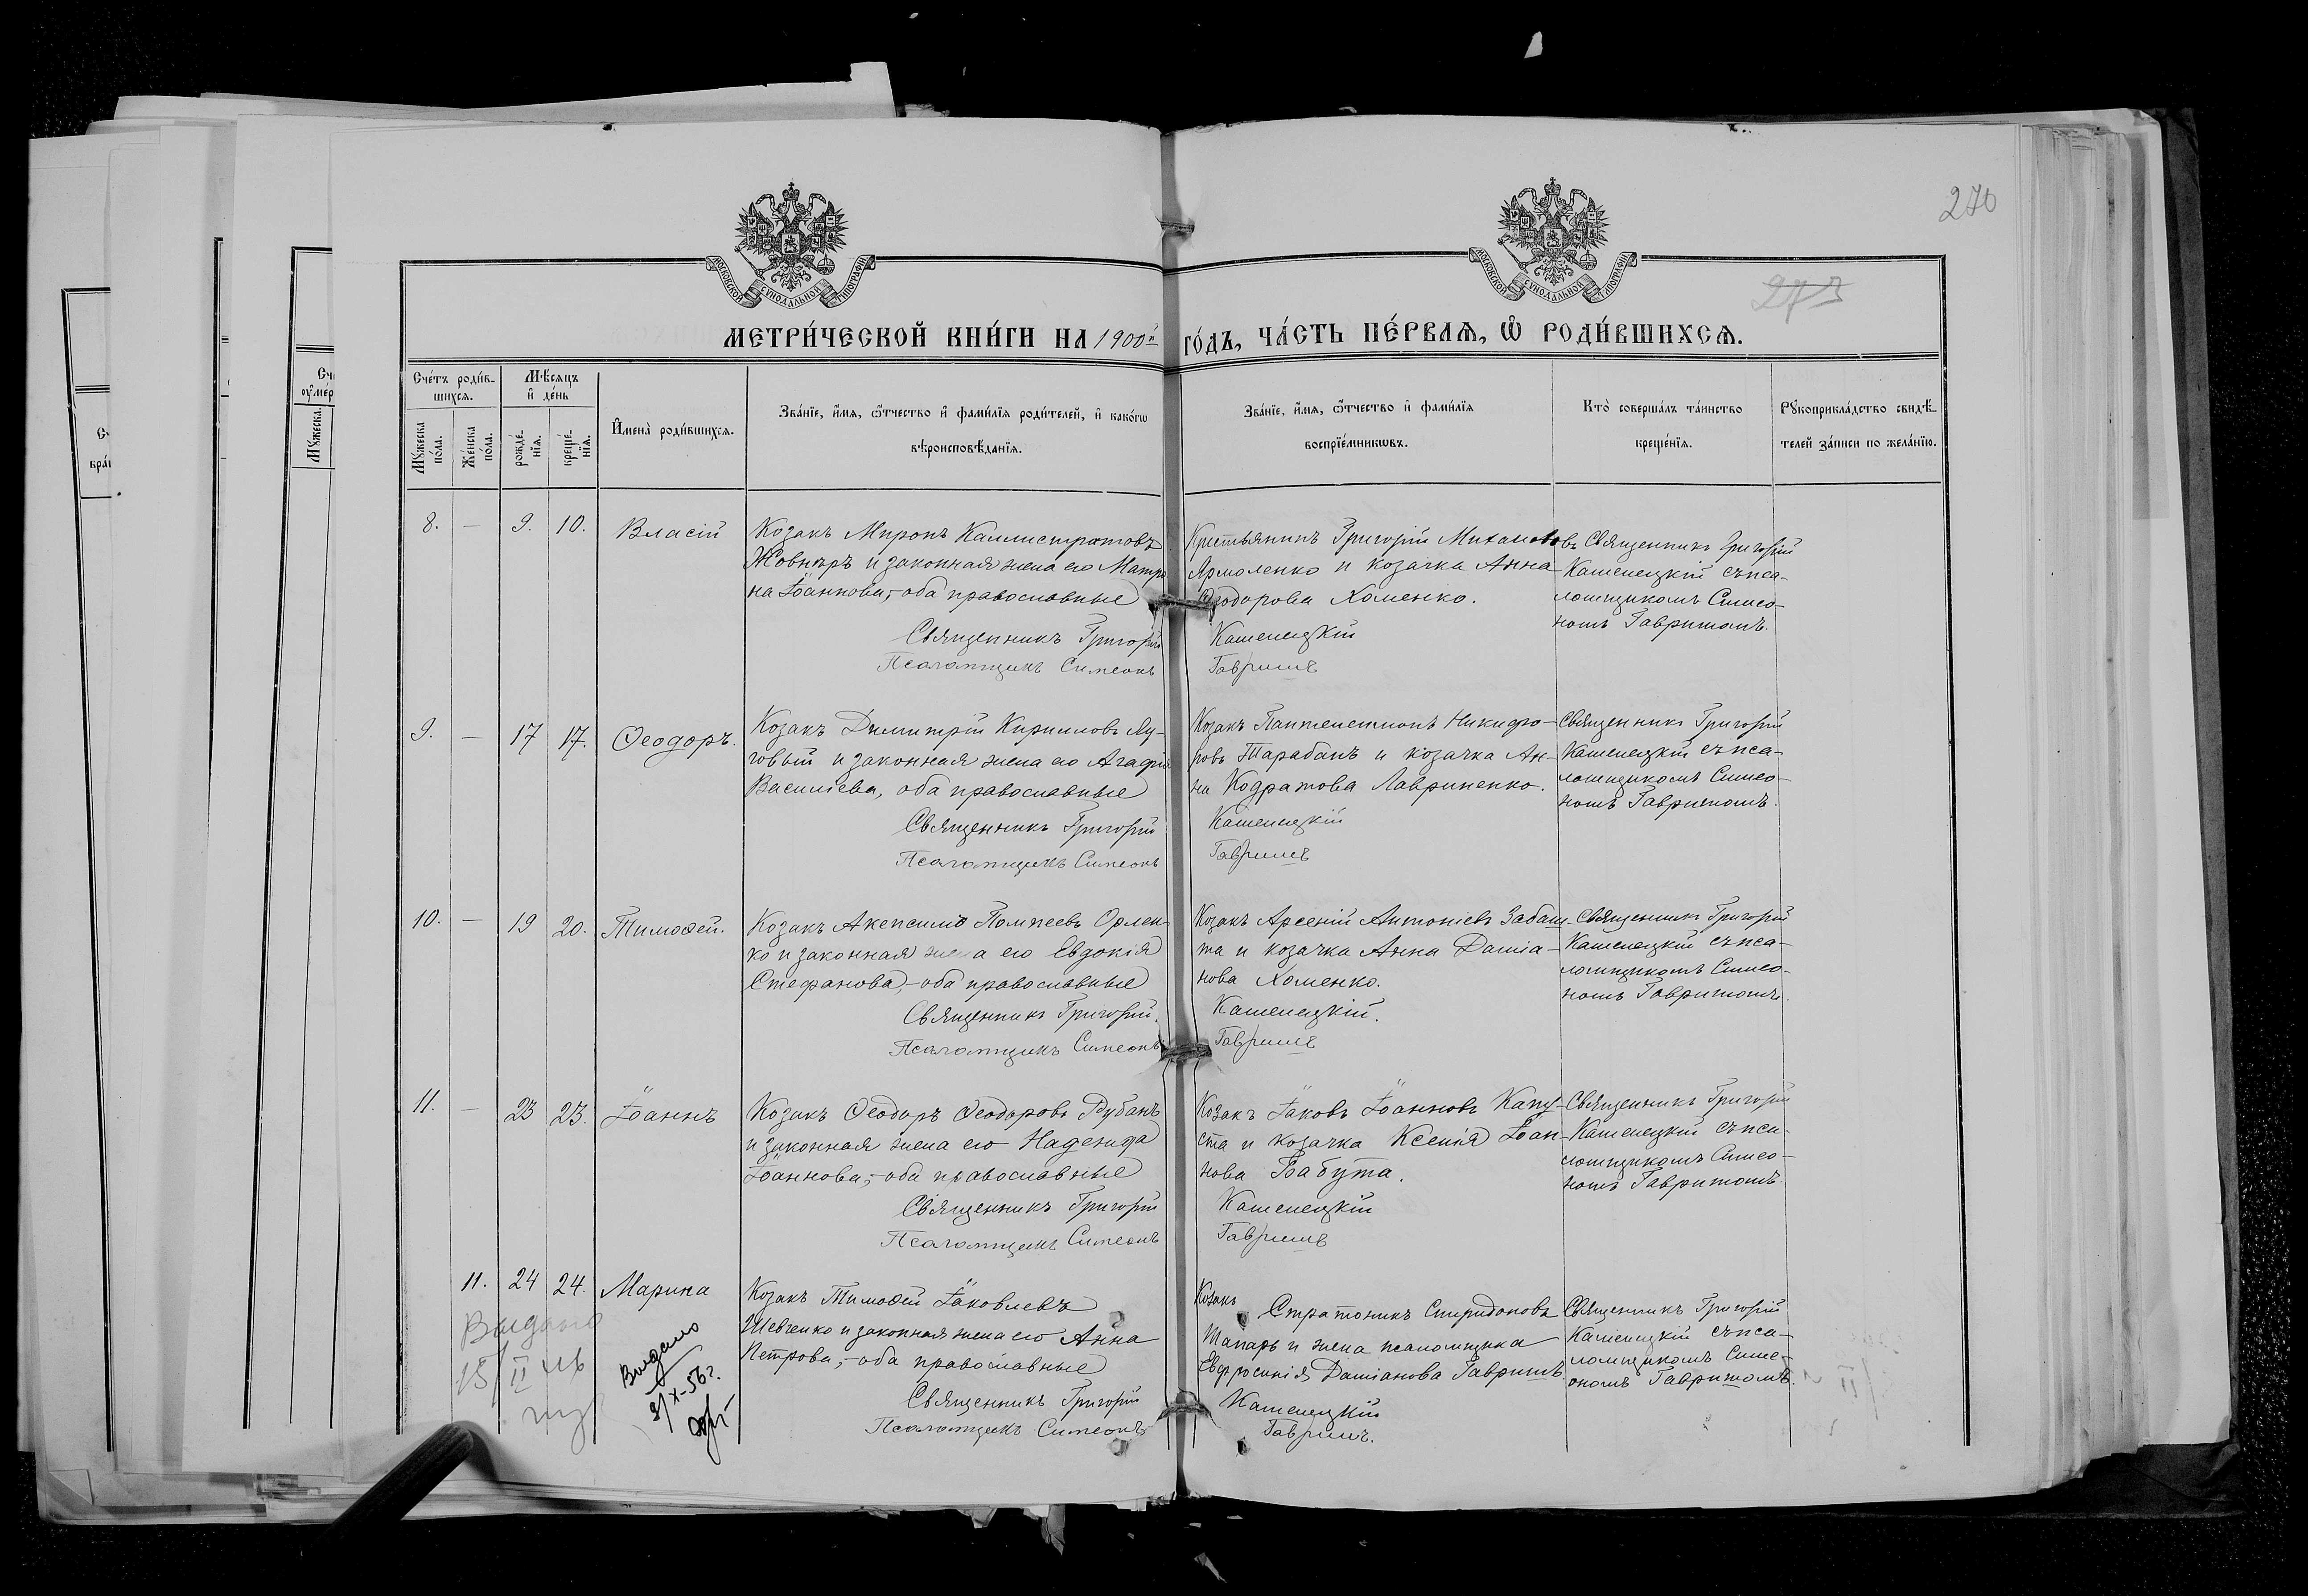 270
273
МОСКОВСКОЙ СѴНОДАЛЬНОЙ ТИПОГРАФІИ
МОСКОВСКОЙ СѴНОДАЛЬНОЙ ТИПОГРАФІИ
МЕТРИ́ЧЕСКОЙ КНИ́ГИ НА 1900й ГО́ДЪ, ЧА́СТЬ ПЕ́РВАѦ, Ѡ҆ РОДИ́ВШИХСѦ.
Сче́тъ роди́в-
шихсѧ.
Мꙋ́жеска
по́ла.
Же́нска
по́ла.
Мѣ́сѧцъ
и҆ де́нь
рожде́-
нїѧ.
креще́-
нїѧ.
И҆мена̀ роди́вшихсѧ.
Зва́нїе, и҆́мѧ, ѻ҆́тчество и҆ фами́лїѧ роди́телей, и҆ како́гѡ
вѣроисповѣ́данїѧ.
Зва́нїе, и҆́мѧ, ѻ҆́тчество и҆ фами́лїѧ
воспрїе́мникѡвъ.
Кто̀ соверша́лъ та́инство
креще́нїѧ.
Рꙋкоприкла́дство свидѣ́-
телей за́писи по жела́нїю.
8. — 9. 10. Власій
Козакъ Миронъ Каллистратовъ
Жовнѣръ и законная жена его Матро
на Іоаннова,- оба православные
Священникъ Григорій Каменецкій
Псаломщикъ Симеонъ Гавришъ
Крестьянинъ Григорій Михаиловъ
Ярмоленко и козачка Анна
Ѳеодорова Хоменко.
Священникъ Григорій
Каменецкій съ пса-
ломщикомъ Симео-
номъ Гавришомъ.
9. — 17 17. Ѳеодоръ.
Козакъ Димитрій Кирилловъ Лу-
говый и законная жена его Агафія
Василіева, оба православные
Священникъ Григорій Каменецкій
Псаломщикъ Симеонъ Гавришъ
Козакъ Пантелеимонъ Никифо-
ровъ Тарабанъ и козачка Ан-
на Кодратова Лавриненко.
Священникъ Григорій
Каменецкій съ пса-
ломщикомъ Симео-
номъ Гавришомъ.
10. — 19 20. Тимоѳей.
Козакъ Акепсимъ Помпеевъ Орлен-
ко и законная жена его Евдокія
Стефанова,- оба православные
Священникъ Григорій. Каменецкій.
Псаломщикъ Симеонъ Гавришъ
Козакъ Арсеній Антоніевъ Забаш-
та и козачка Анна Даміа-
нова Хоменко.
Священникъ Григорій
Каменецкій съ пса-
ломщикомъ Симео-
номъ Гавришомъ.
11. — 23 23. Іоаннъ
Козакъ Ѳеодоръ Ѳеодоровъ Рубанъ
и законная жена его Надежда
Іоаннова,- оба православные
Священникъ Григорій Каменецкій
Псаломщикъ Симеонъ Гавришъ
Козакъ Іаковъ Іоанновъ Капу-
ста и козачка Ксенія Іоан-
нова Бабута.
Священникъ Григорій
Каменецкій съ пса-
ломщикомъ Симео-
номъ Гавришомъ.
11. 24 24. Марина
Козакъ Тимоѳей Іаковлевъ
Шевченко и законная жена его Анна
Петрова,- оба православные
Священникъ Григорій Каменецкій
Псаломщикъ Симеонъ Гавришъ.
Козакъ
Стратоникъ Спиридоновъ
Шапарь и жена псаломщика
Евфросинія Даміанова Гавришъ.
Священникъ Григорій
Каменецкій съ пса-
ломщикомъ Симе-
ономъ Гавришомъ.
Выдано
15/II
Выдано
3/X-56г.